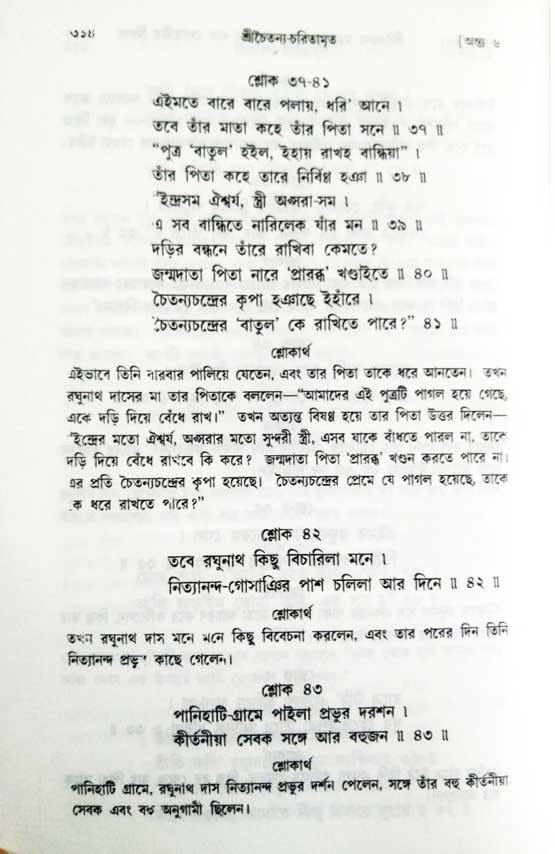 ৩১৪ শ্রীচৈতন্য-চরিতামৃত [অন্ত্য ৬
শ্লোক ৩৭-৪১
এইমতে বারে বারে পলায়, ধরি' আনে ।
তবে তাঁর মাতা কহে তাঁর পিতা সনে ॥ ৩৭ ॥
“পুত্র 'বাতুল' হইল, ইহায় রাখহ বান্ধিয়া” ।
তাঁর পিতা কহে তারে নির্বিণ্ণ হঞা ॥ ৩৮ ॥
“ইন্দ্রসম ঐশ্বর্য, স্ত্রী অপ্সরা-সম ।
এ সব বান্ধিতে নারিলেক যাঁর মন ॥ ৩৯ ॥
দড়ির বন্ধনে তাঁরে রাখিবা কেমতে?
জন্মদাতা পিতা নারে 'প্রারব্ধ' খণ্ডাইতে ॥ ৪০ ॥
চৈতন্যচন্দ্রের কৃপা হঞাছে ইহাঁরে ।
চৈতন্যচন্দ্রের 'বাতুল' কে রাখিতে পারে?” ৪১ ॥
শ্লোকার্থ
এইভাবে তিনি বারবার পালিয়ে যেতেন, এবং তার পিতা তাকে ধরে আনতেন। তখন
রঘুনাথ দাসের মা তার পিতাকে বললেন—“আমাদের এই পুত্রটি পাগল হয়ে গেছে,
একে দড়ি দিয়ে বেঁধে রাখ।” তখন অত্যন্ত বিষণ্ণ হয়ে তার পিতা উত্তর দিলেন—
“ইন্দ্রের মতো ঐশ্বর্য, অপ্সরার মতো সুন্দরী স্ত্রী, এসব যাকে বাঁধতে পারল না, তাকে
দড়ি দিয়ে বেঁধে রাখবে কি করে? জন্মদাতা পিতা 'প্রারব্ধ' খণ্ডন করতে পারে না।
এর প্রতি চৈতন্যচন্দ্রের কৃপা হয়েছে। চৈতন্যচন্দ্রের প্রেমে যে পাগল হয়েছে, তাকে
কে ধরে রাখতে পারে?”
শ্লোক ৪২
তবে রঘুনাথ কিছু বিচারিলা মনে ।
নিত্যানন্দ-গোসাঞির পাশ চলিলা আর দিনে ॥ ৪২ ॥
শ্লোকার্থ
তখন রঘুনাথ দাস মনে মনে কিছু বিবেচনা করলেন, এবং তার পরের দিন তিনি
নিত্যানন্দ প্রভুর কাছে গেলেন।
শ্লোক ৪৩
পানিহাটি-গ্রামে পাইলা প্রভুর দরশন ।
কীর্তনীয়া সেবক সঙ্গে আর বহুজন ॥ ৪৩ ॥
শ্লোকার্থ
পানিহাটি গ্রামে, রঘুনাথ দাস নিত্যানন্দ প্রভুর দর্শন পেলেন, সঙ্গে তাঁর বহু কীর্তনীয়া
সেবক এবং বহু অনুগামী ছিলেন।